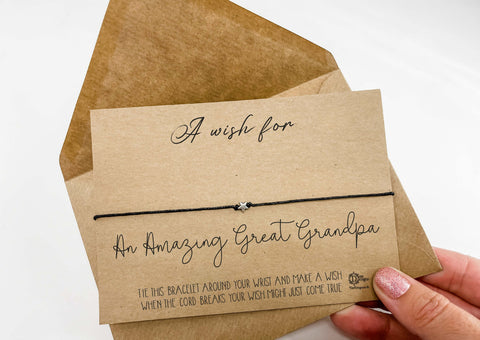 A wish for
An Amazing Great Grandpa
TIE THIS BRACELET AROUND YOUR WRIST AND MAKE A WISH
WHEN THE CORD BREAKS YOUR WISH MIGHT JUST COME TRUE